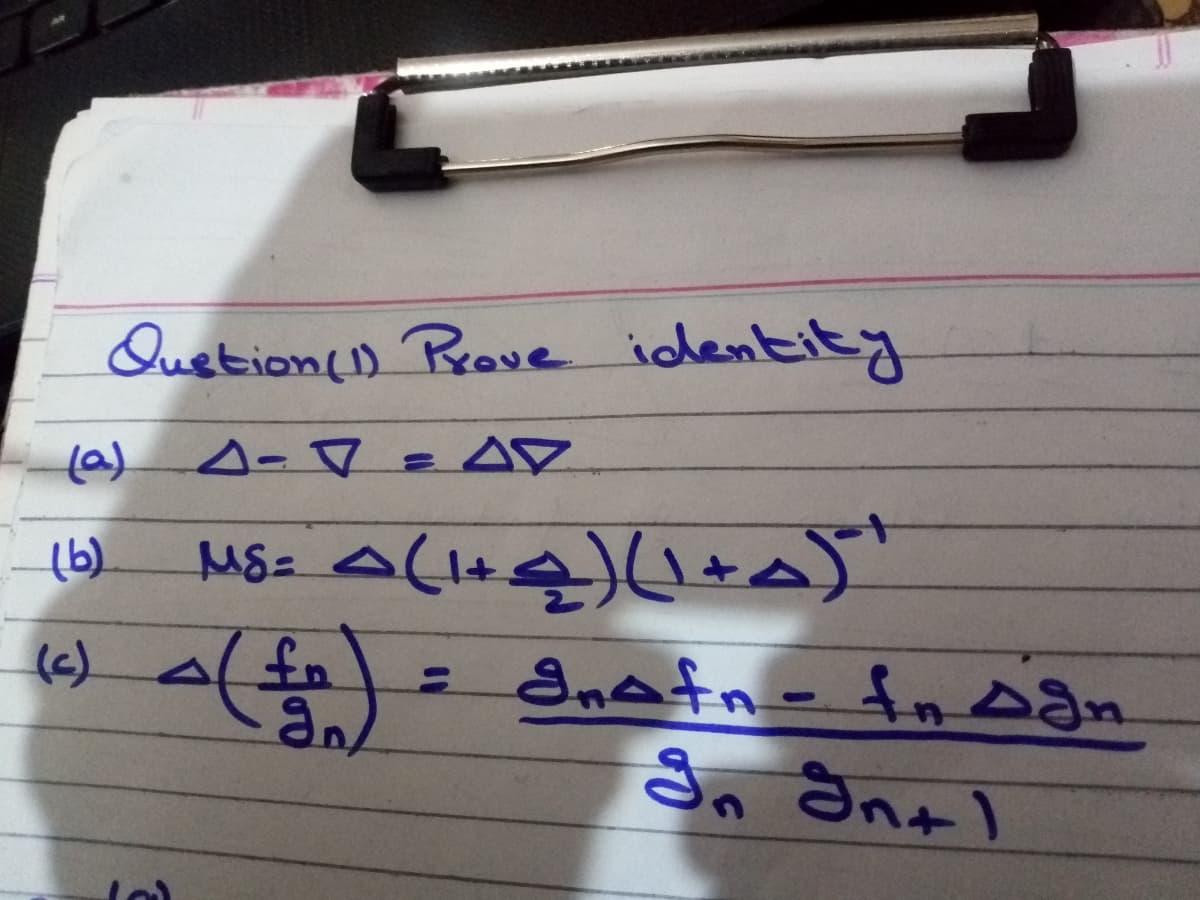 Qustion(1) Prove identity
(a) Δ - ∇ = Δ∇
(b) μδ = Δ(1 + Δ/2)(1 + Δ)⁻¹
(c) Δ(fn/gn) = (gnΔfn - fnΔgn)/(gn gn+1)